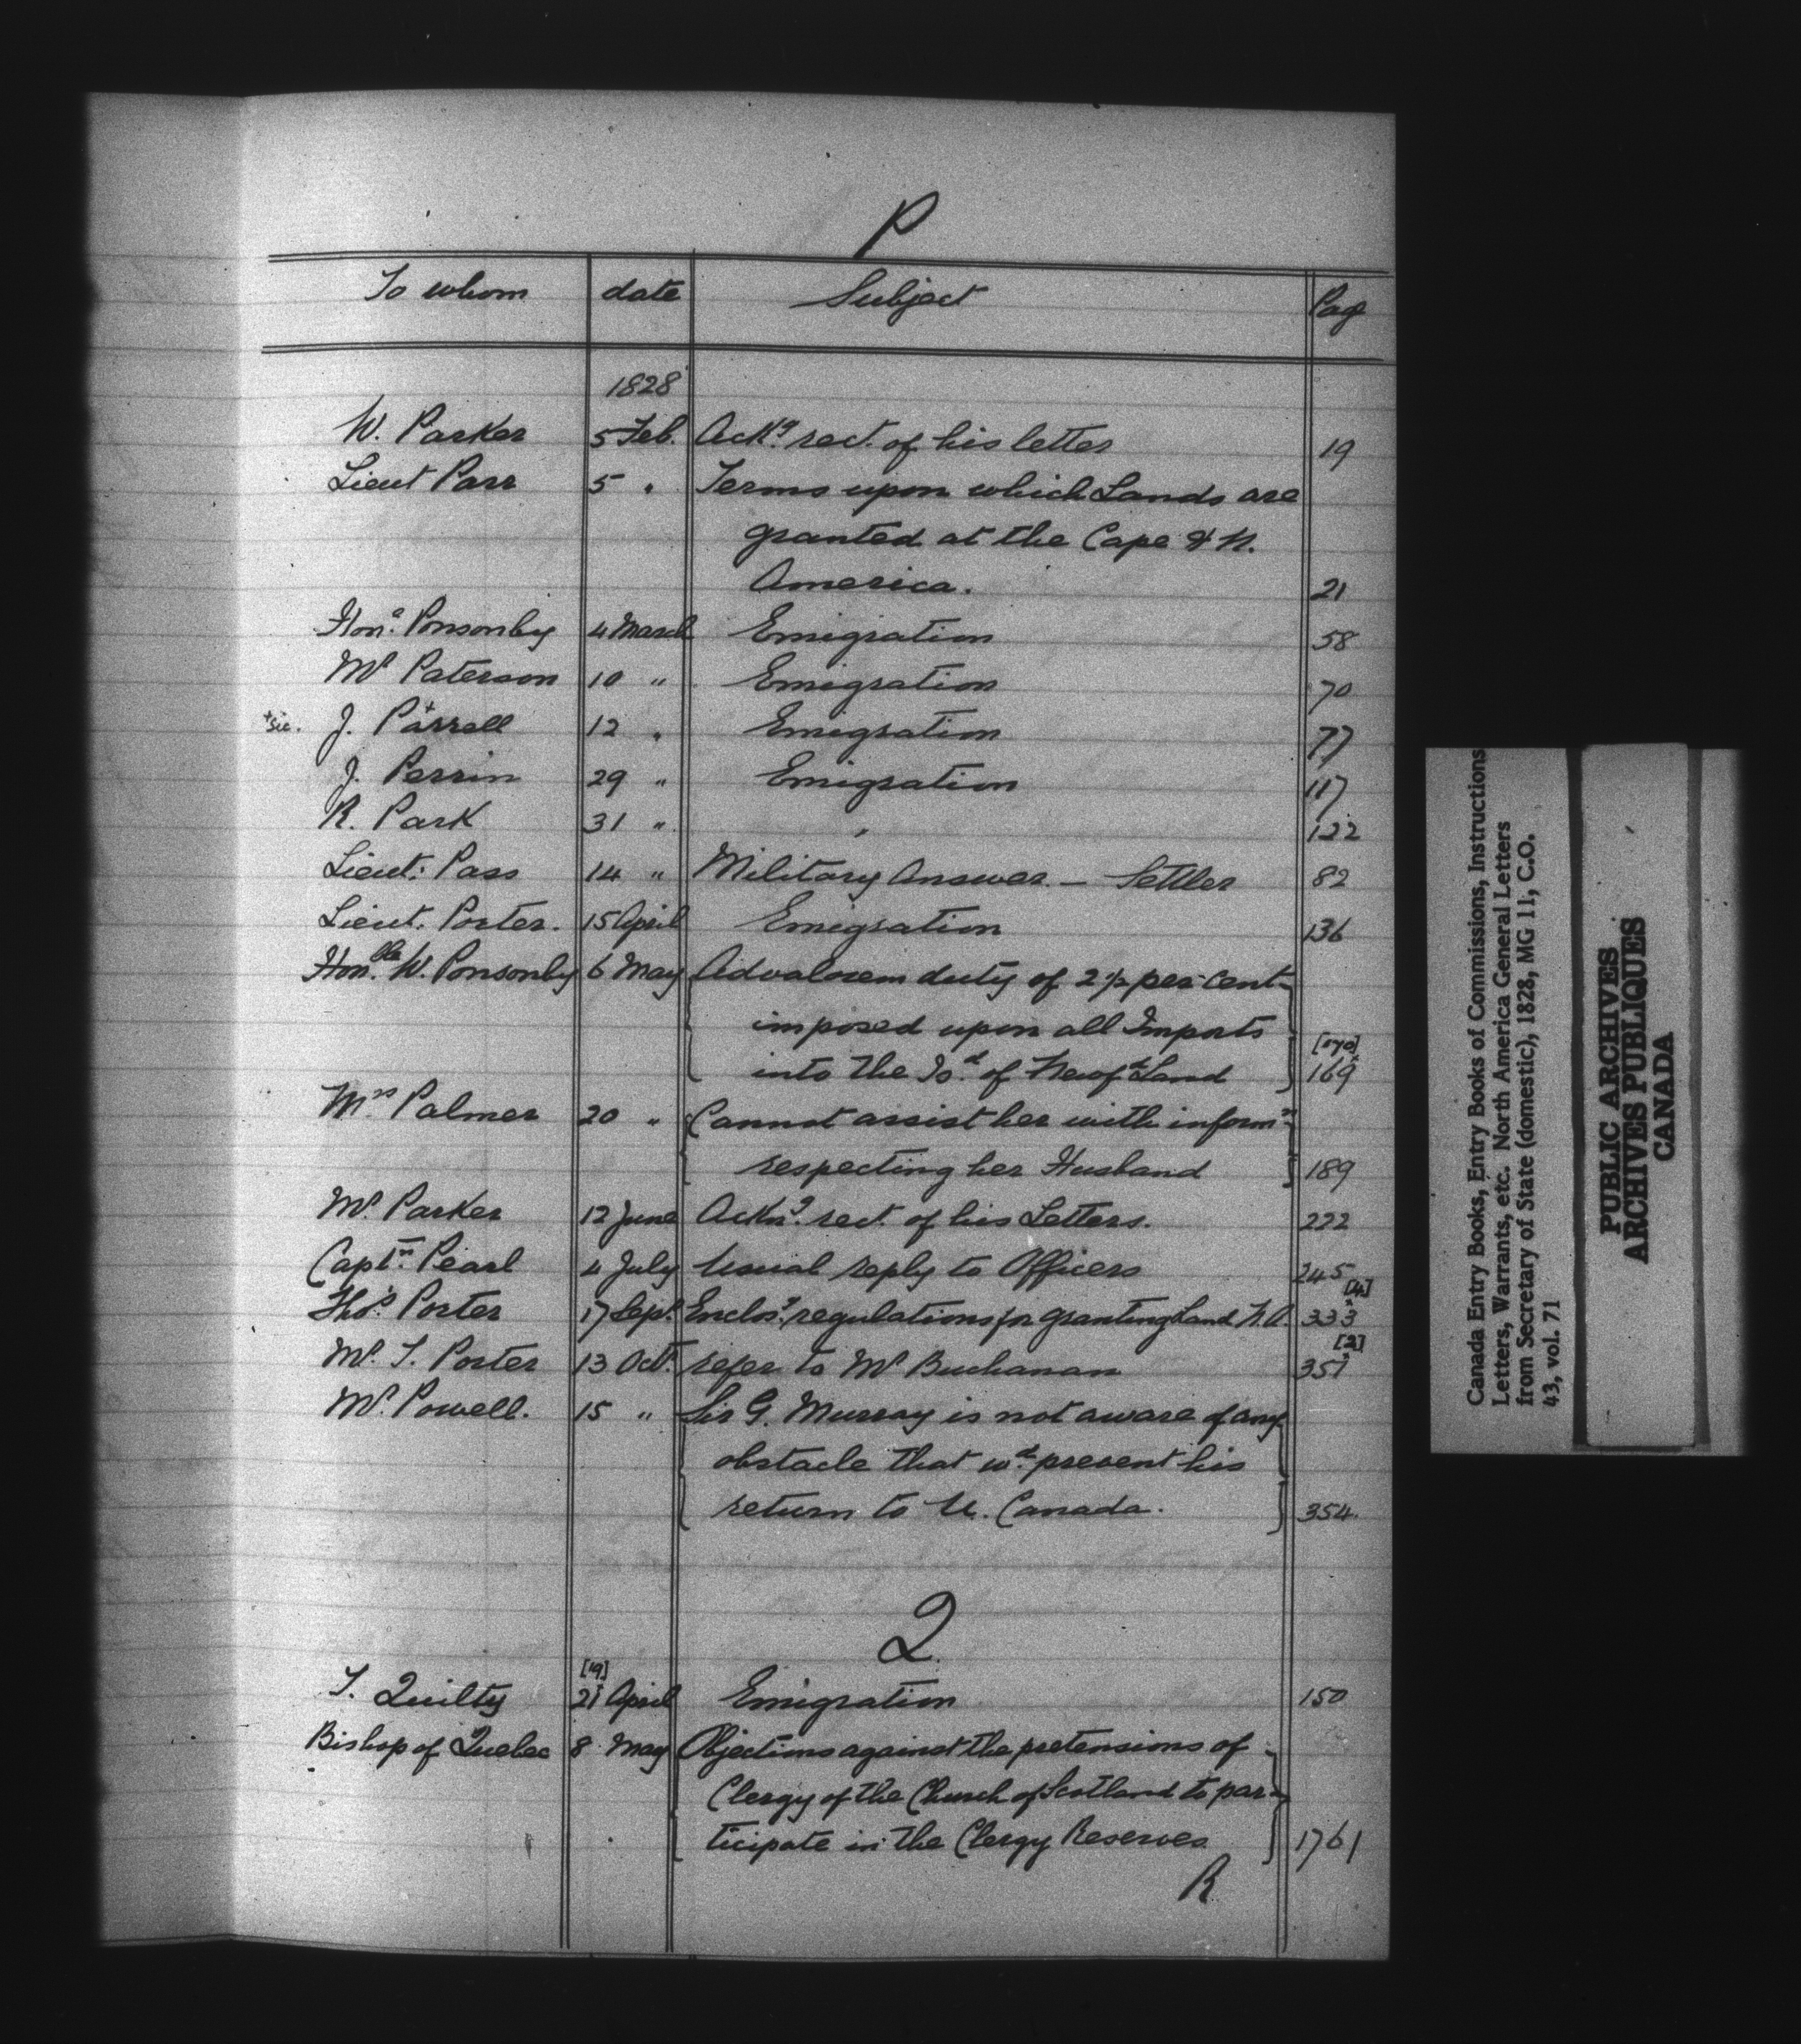 P
To whom date Subject Pag
1828
W. Parker 5 Feb. Ackg rect. of his letter 19
Lieut Parr 5 " Terms upon which Lands are
granted at the Cape & N.
America. 21
Hon. Ponsonby 4 March Emigration 58
Mr Paterson 10 " Emigration 70
+sic. J. Pa+rrell 12 " Emigration 77
J. Perrin 29 " Emigration 117
R. Park 31 " " 122
Lieut: Pass 14 " Military Answer. — Settler 82
Lieut. Porter. 15 April Emigration 136
Honble W. Ponsonby 6 May Advalorem duty of 2½ per cent
imposed upon all Imports
into the Isd. of Newfd Land [170] 169x
Mrs Palmer 20 " Cannot assist her with informn
respecting her Husband 189
Mr. Parker 12 June Ackng. rect. of his Letters. 222
Captn. Pearl 4 July Usual reply to Officers 245
Thos Porter 17 Sept. Enclosg. regulations for granting Land N.A. 333x [4]
Mr. T. Porter 13 Oct. refer to Mr Buchanan 351x [2]
Mr. Powell. 15 " Sir G. Murray is not aware of any
obstacle that wd. prevent his
return to U. Canada. 354.
Q
T. Quilty [19] 21 April Emigration 150
Bishop of Quebec 8 May Objections against the pretensions of
Clergy of the Church of Scotland to par-
ticipate in the Clergy Reserves 1761
R
Canada Entry Books, Entry Books of Commissions, Instructions
Letters, Warrants, etc. North America General Letters
from Secretary of State (domestic), 1828, MG 11, C.O.
43, vol. 71
PUBLIC ARCHIVES
ARCHIVES PUBLIQUES
CANADA